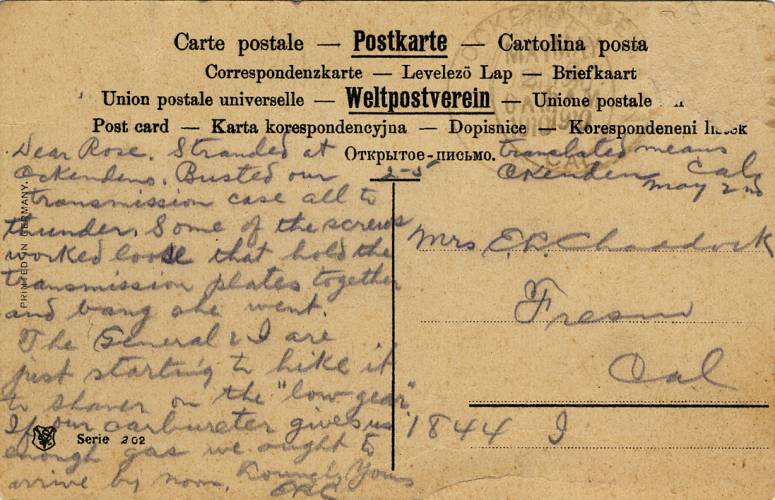 Carte postale — Postkarte — Cartolina posta
Correspondenzkarte — Levelező Lap — Briefkaart
Union postale universelle — Weltpostverein — Unione postale
Post card — Karta korespondencyjna — Dopisnice — Korespondeneni
Открытое-письмо.
Dear Rose. Stranded at
Ockendens. Busted our
transmission case all to
thunder. Some of the screws
worked loose that hold the
transmission plates together
and bang she went.
The General & I are
just starting to hike it
to Shaver on the "low gear"
If our carbureter gives us
enough gas we ought to
arrive by noon. Yours
ERC
translated means
Ockenden Cal.
May 2nd
Mrs E.R. Chaddock
Fresno
Cal
1844 I
PRINTED IN GERMANY.
Serie 202